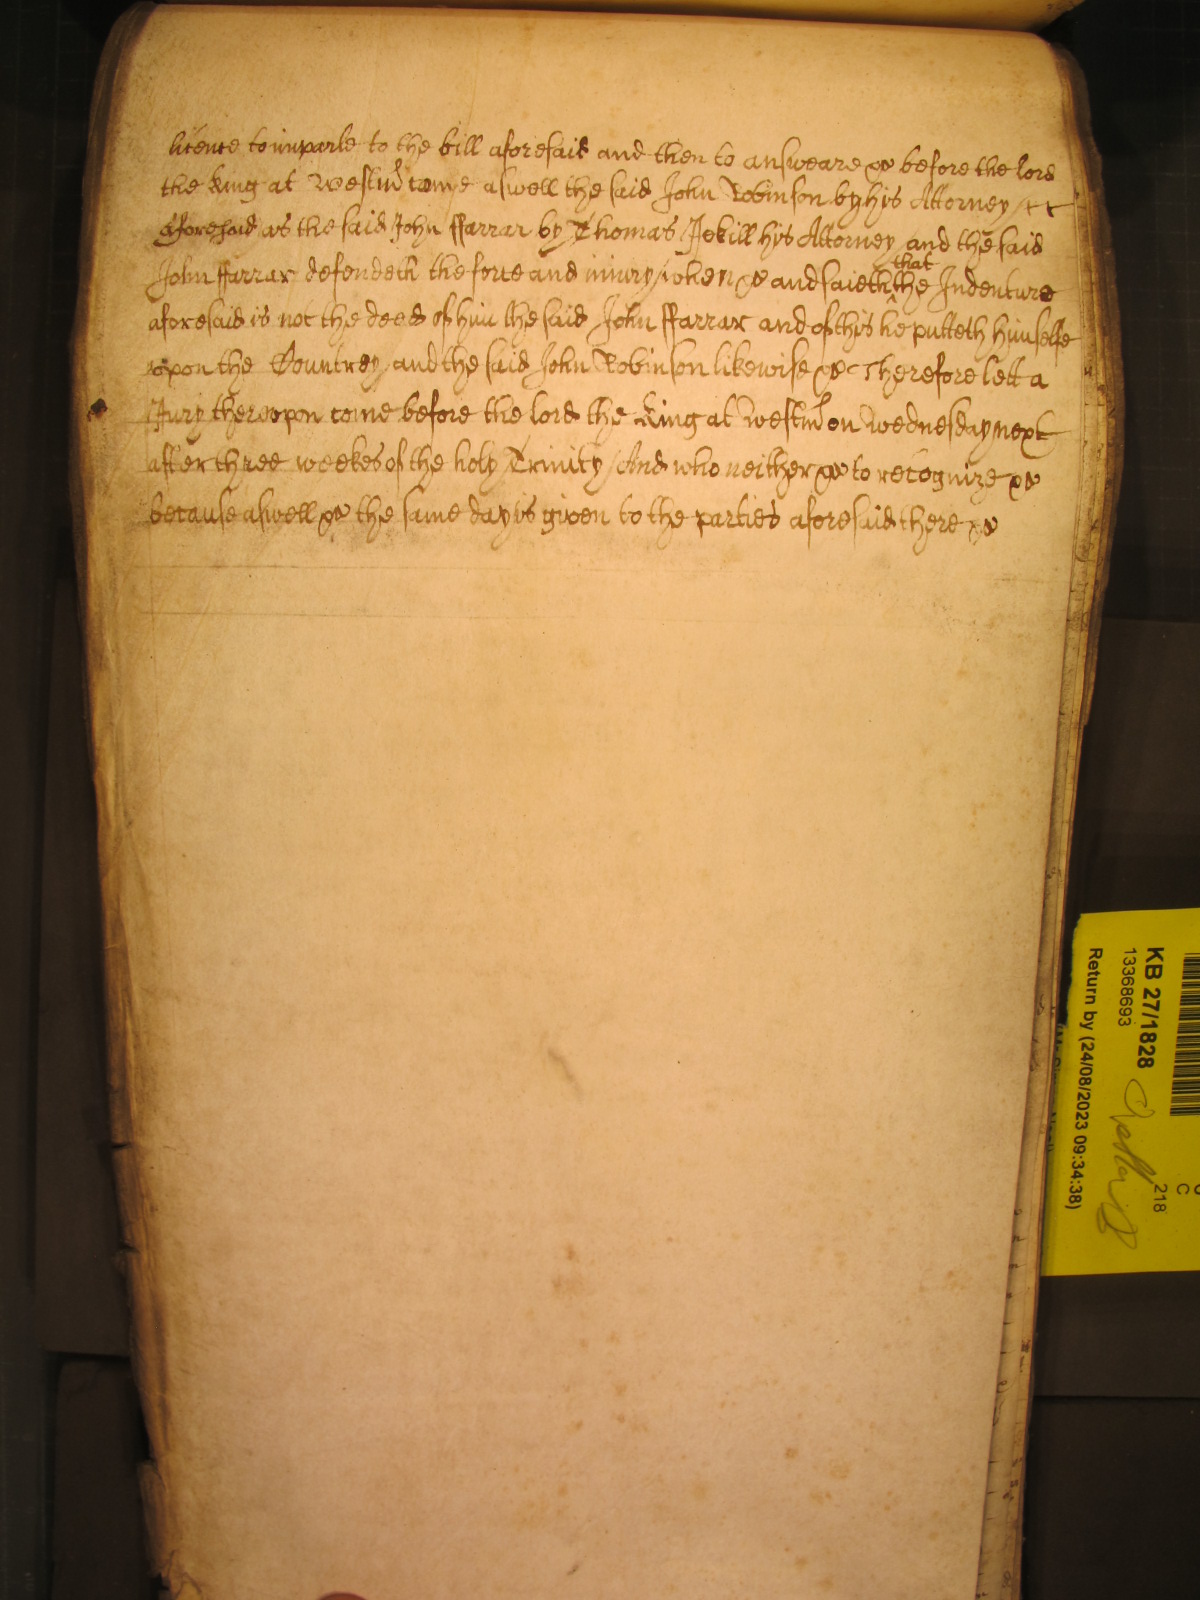 licence to imparle to the bill aforesaid and then to answeare &c before the lord
the King at Westmr come aswell the said John Robinson by his Attorney
aforesaid as the said John ffarrar by Thomas Jekill his Attorney and the said
that
John ffarrar defendeth the force and iniury when &c and saieth ^ the Indenture
aforesaid is not the deed of him the said John ffarrar and of this he putteth himselfe
upon the Countrey and the said John Robinson likewise &c Therefore lett a
Jury thereupon come before the lord the King at Westmr on Wednesday next
after three weekes of the holy Trinity And who neither &c to recognize &c
because aswell &c the same day is given to the parties aforesaid there &c
KB 27/1828
13368693
Return by (24/08/2023 09:34:38)
218
C